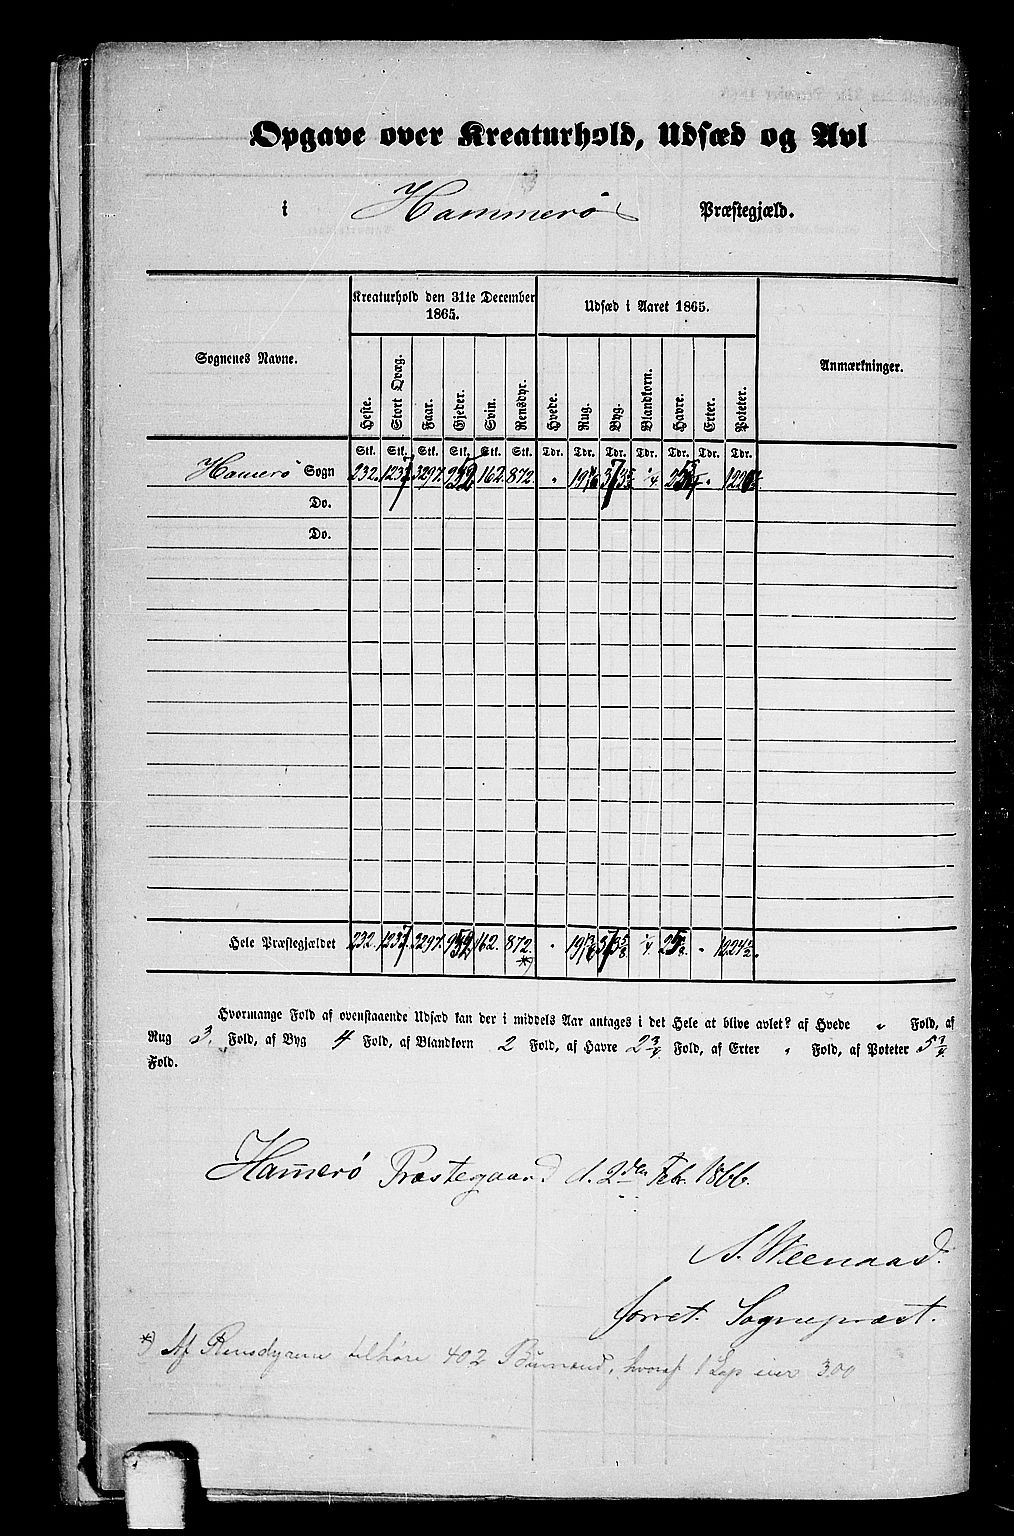 Opgave over Kreaturhold, Udsæd og Avl
i Hammerø Præstegjæld.
Sognenes Navne.
Kreaturhold den 31te December 1865.
Udsæd i Aaret 1865.
Anmærkninger.
Heste. Stort Qvæg. Faar. Gjeder. Svin. Rensdyr. Hvede. Rug. Byg. Blandkorn. Havre. Erter. Poteter.
Stk. Stk. Stk. Stk. Stk. Stk. Tdr. Tdr. Tdr. Tdr. Tdr. Tdr. Tdr.
Hamerø Sogn 232. 1237 3297. 952 162. 872. " ¼ "
Do.
Do.
Hele Præstegjældet 232. 1237 3297. 952 162. 872. *) " ¼ " 1224½.
Hvormange Fold af ovenstaaende Udsæd kan der i middels Aar antages i det Hele at blive avlet? af Hvede " Fold, af
Rug 3. Fold, af Byg 4 Fold, af Blandkorn 2 Fold, af Havre 2¾ Fold, af Erter " Fold, af Poteter 5¾
Fold.
Hamerø Præstegaard d. 2den Febr. 1866.
A. Weenaas.
forret. Sognepræst.
*) Af Rensdyrene tilhøre 402 Bumænd, hvoraf 1 Lap eier 300